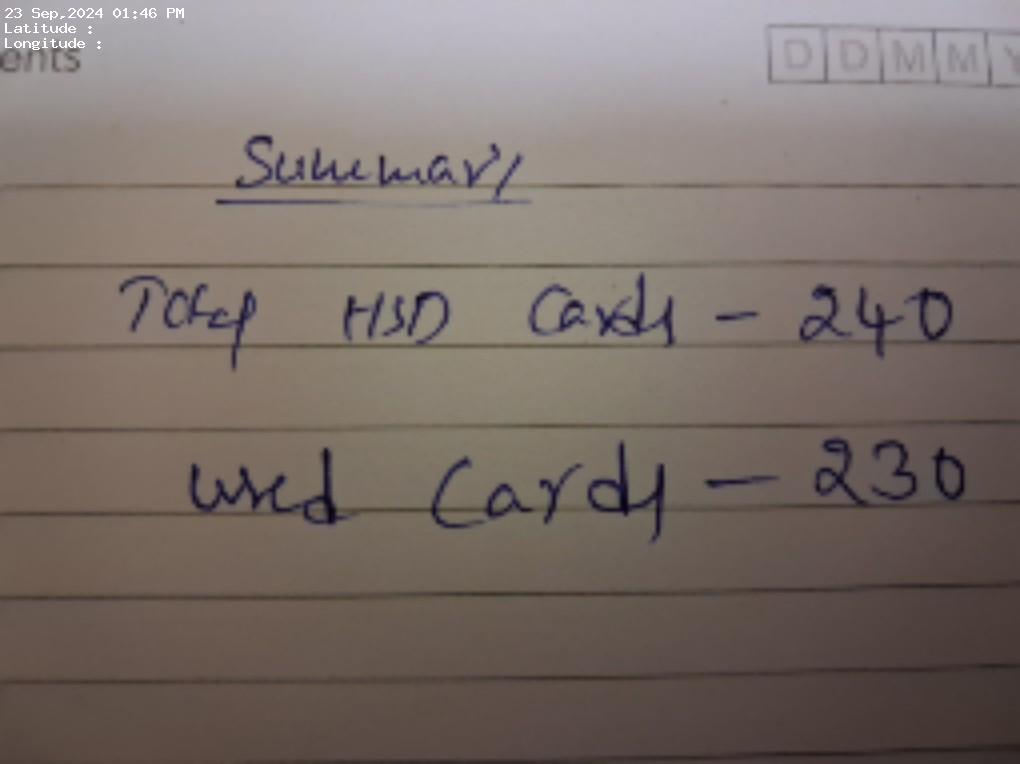 23 Sep,2024 01:46 PM
Latitude :
Longitude :
ents
D D M M Y
Summary
Total HSD Cards - 240
used Cards - 230